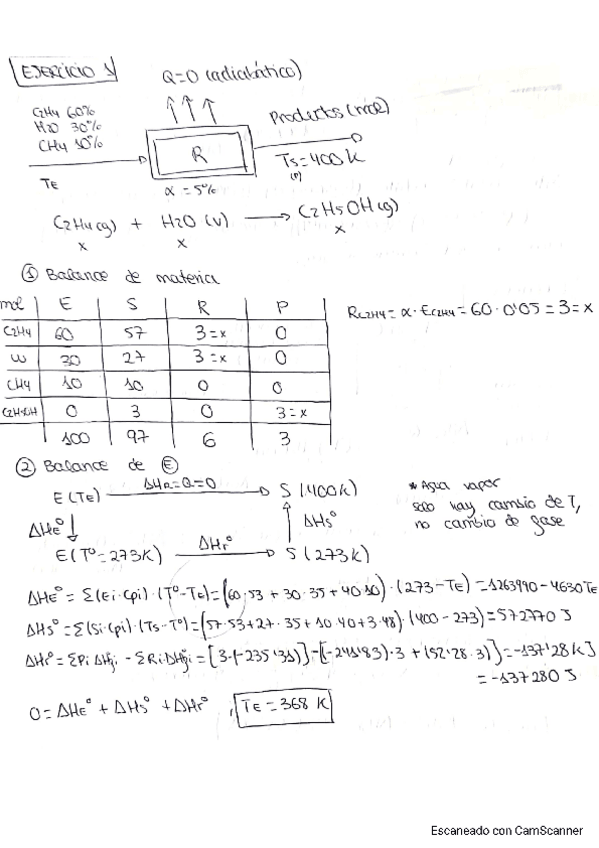 EJERCICIO 1
Q=0 (adiabático)
C2H4 60%
H2O 30%
CH4 10%
Productos
R
TE
Ts=400K
(P)
α = 5%
C2H4 (g) + H2O (v) → C2H5OH (g)
x x x
① Balance de materia
mol E S R P
C2H4 60 57 3=x 0
W 30 27 3=x 0
CH4 10 10 0 0
C2H5OH 0 3 0 3=x
100 97 6 3
RC2H4 = α · EC2H4 = 60 · 0'05 = 3 = x
② Balance de Ⓔ
E (TE) ΔHR=Q=0 → S (400K)
* Agua vapor
solo hay cambio de T,
no cambio de fase
ΔHE° ↓ ↑ ΔHs°
E (T°=273K) ΔHr° → S (273K)
ΔHE° = Σ(Ei·Cpi)·(T°-TE)=(60·53 + 30·35 + 40·10)·(273-TE) = 1263990-4630TE
ΔHs° = Σ(Si·Cpi)·(Ts-T°)=(57·53+27·35+10·40+3·48)·(400-273)=572770 J
ΔHr° = ΣPi ΔHfi - ΣRi ΔHfi = [3·(-235'31)]-[(-241'83)·3 + (52'28·3)]=-137'28 KJ
= -137280 J
0 = ΔHE° + ΔHs° + ΔHr° , TE = 368 K
Escaneado con CamScanner